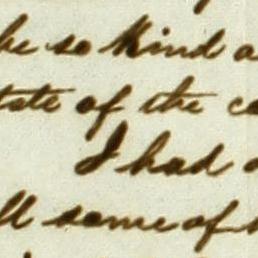 be so kind a
tate of the co
I had a
ll some of h